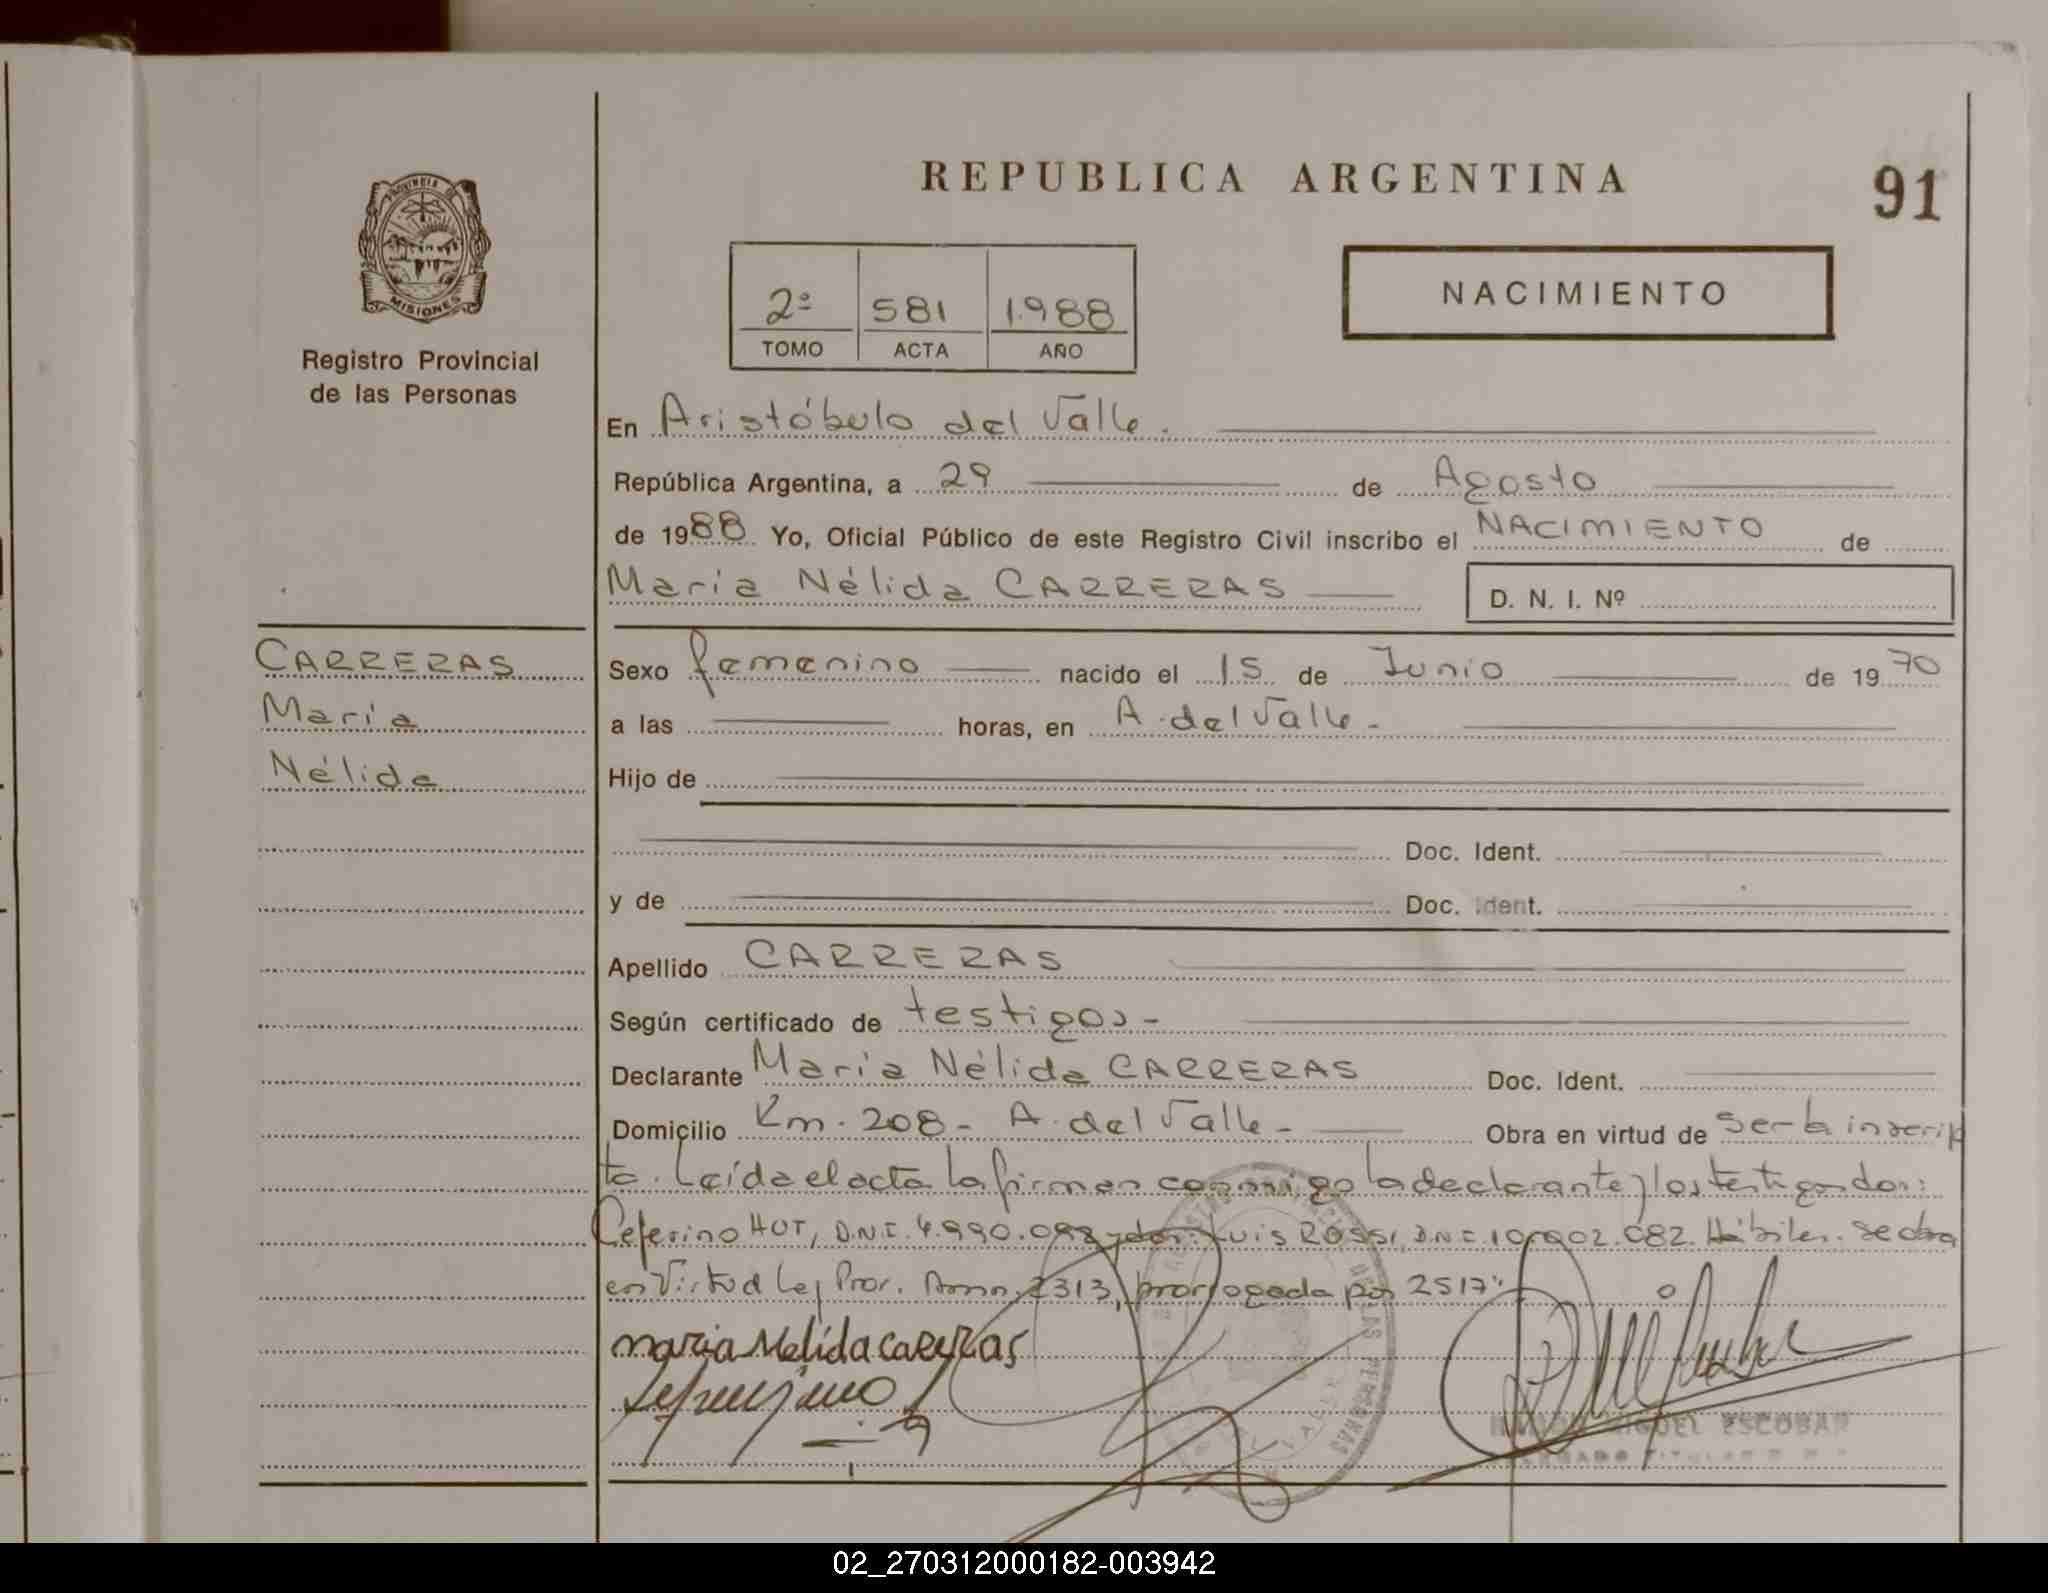 REPUBLICA ARGENTINA
91
PROVINCIA DE
MISIONES
Registro Provincial
de las Personas
2º 581 1.988
TOMO ACTA AÑO
NACIMIENTO
En Aristóbulo del Valle.
República Argentina, a 29 de Agosto
de 1988 Yo, Oficial Público de este Registro Civil inscribo el NACIMIENTO de
María Nélida CARRERAS D. N. I. Nº
CARRERAS
María
Nélida
Sexo femenino nacido el 15 de Junio de 1970
a las horas, en A. del Valle-
Hijo de
Doc. Ident.
y de Doc. Ident.
Apellido CARRERAS
Según certificado de testigos-
Declarante María Nélida CARRERAS Doc. Ident.
Domicilio Km. 208- A. del Valle- Obra en virtud de ser la inscrip
ta. Leída el acta la firman conmigo la declarante y los testigos don:
Ceferino HUT, D.N.I. 4.990.098 y don: Luis ROSSI, D.N.I. 10.902.082. Hábiles. se obra
en Virtud Ley Prov. Amn. 2313, prorrogada por 2517"
maria Nelida CaRERas
MIGUEL ESCOBAR
02_270312000182-003942